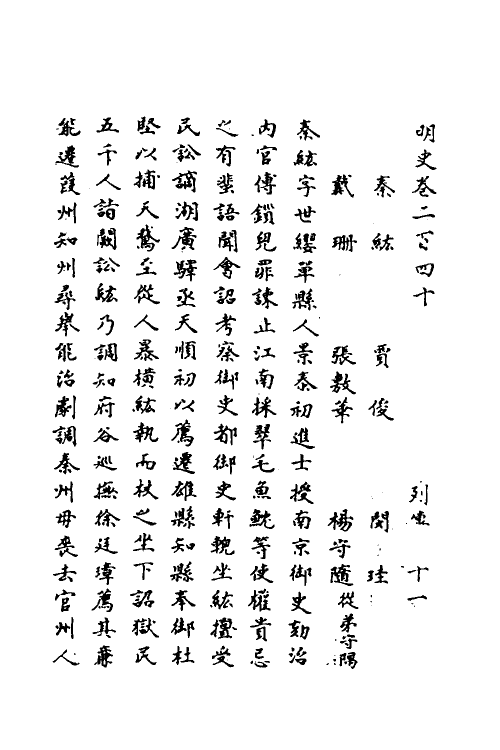 明史卷二百四十 列傳 十一
秦紘 賈俊 閔珪
戴珊 張敷華 楊守隨從弟守隅
秦紘字世纓單縣人景泰初進士授南京御史劾治
内官傅鎖兒罪諌止江南採翠毛魚𩶅等使權貴忌
之有蜚語聞會詔考察御史都御史軒輗坐紘擅受
民訟謫湖廣驛丞天順初以薦遷雄縣知縣奉御杜
堅以捕天鵞至從人暴横紘執而杖之坐下詔獄民
五千人詣闕訟紘乃調知府谷巡撫徐廷璋薦其廉
能遷葭州知州尋舉能治劇調秦州毋喪去官州人